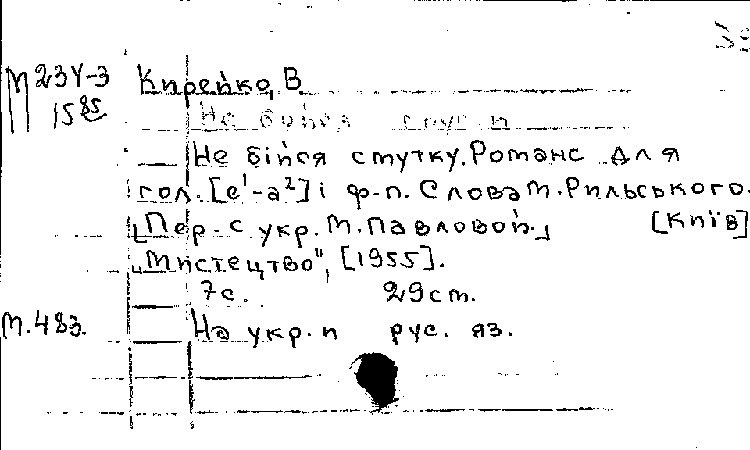 М 234-3
1585
Кирейко, В
Не бойся
Не бійся смутку. Романс для
гол. [e¹-a²] і ф-п. Слова М. Рильського.
[Пер. с укр. М. Павловой.] [Київ]
„Мистецтво", [1955].
7с. 29 cm.
М. 483.
На укр. и рус. яз.